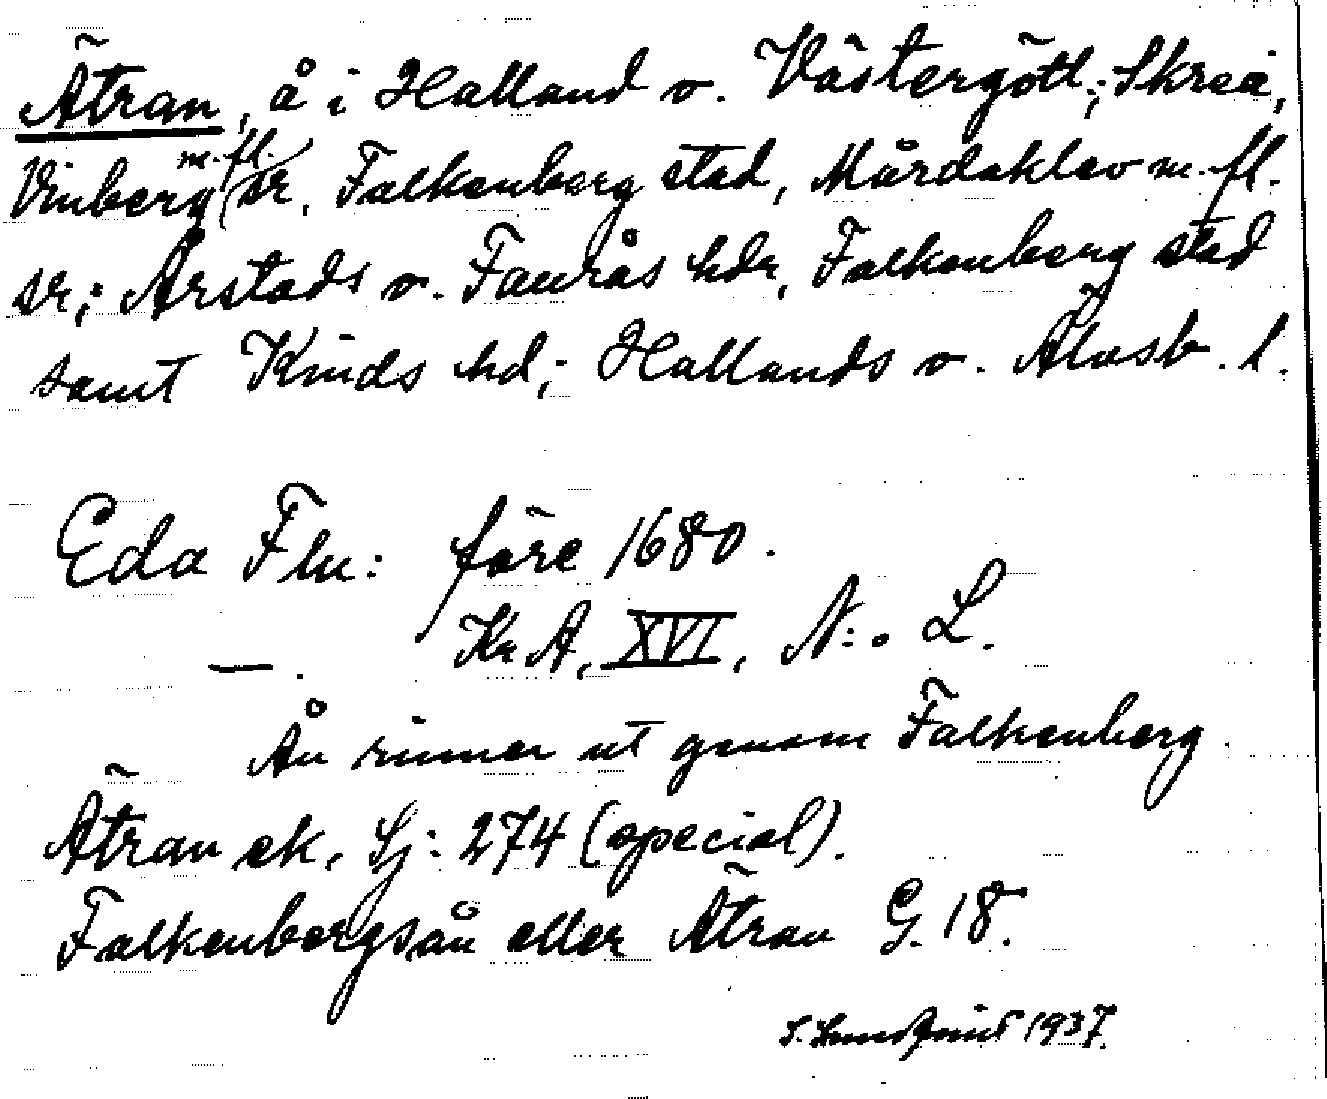 Ätran, å i Halland o. Västergötl.; Skrea,
Vinberg m.fl. sr, Falkenberg stad, Mårdaklev m.fl.
sr; Årstads o. Faurås hdr, Falkenberg stad
samt Kinds hd; Hallands o. Älvsb. l.
Eda Flu: före 1680.
—. KrA, XVI, N:o L.
Ån rinner ut genom Falkenberg.
Ätran ek. Sj: 274 (special).
Falkenbergsån eller Ätran G. 18.
S. Lundqvist 1937.